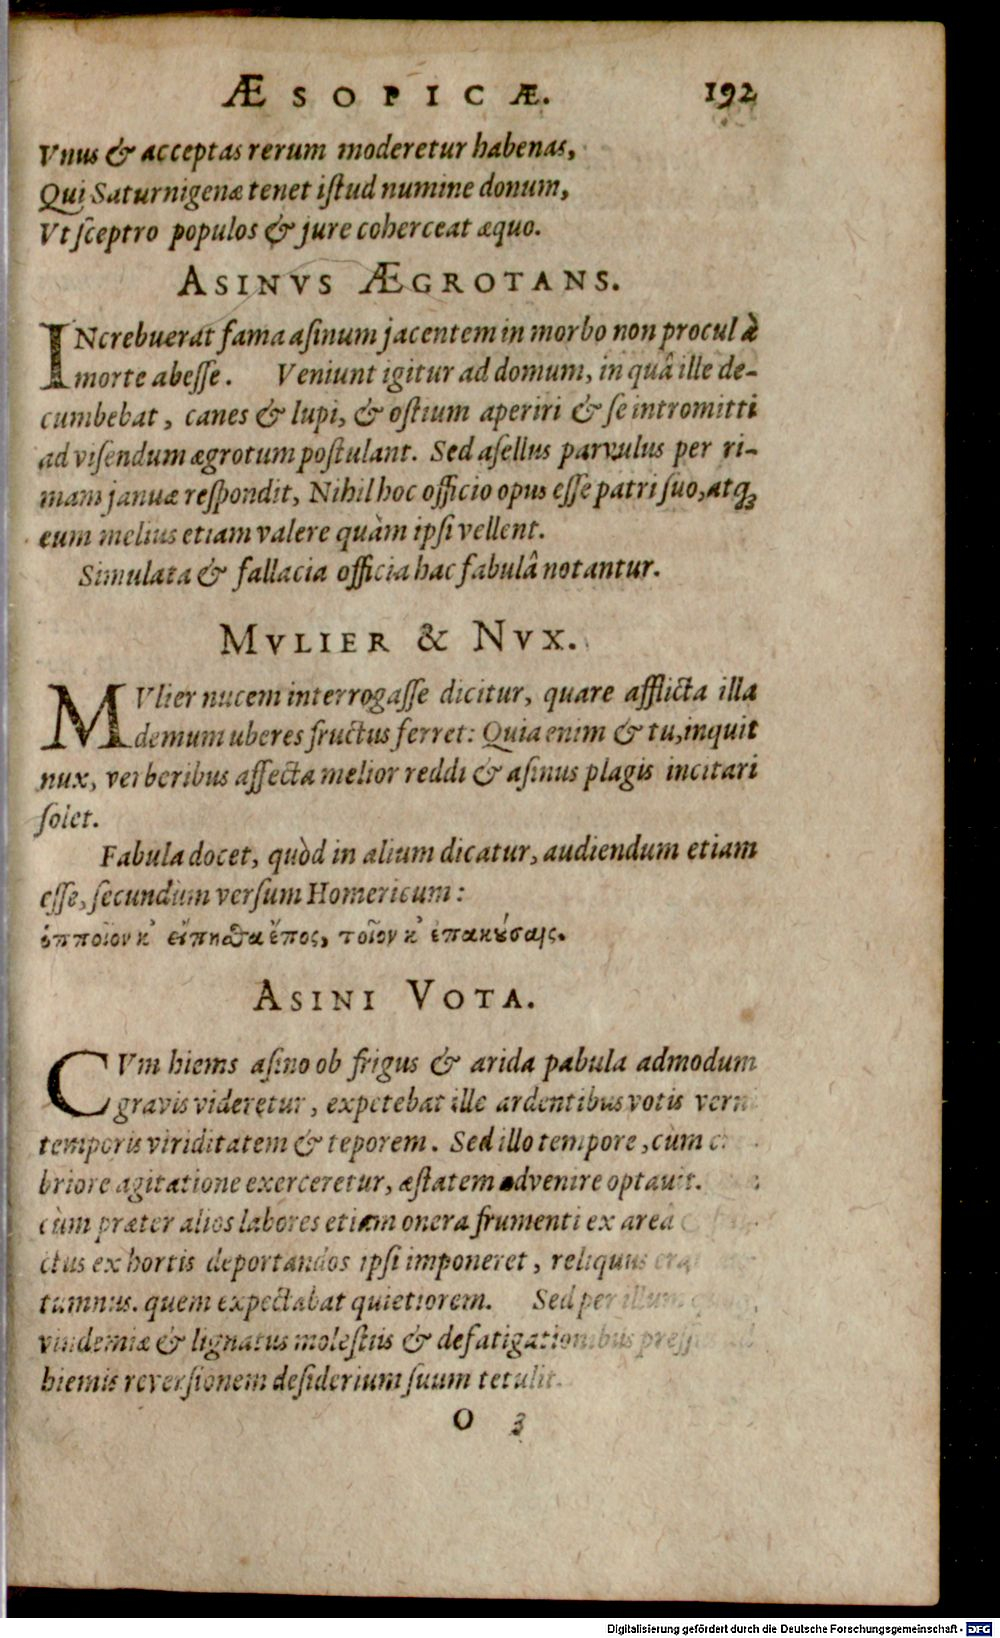 ÆSOPICÆ. 192
Vnus & acceptas rerum moderetur habenas,
Qui Saturnigenæ tenet iſtud numine donum,
Vt ſceptro populos & jure coherceat æquo.
ASINVS ÆGROTANS.
INcrebuerat fama aſinum jacentem in morbo non procul à
morte abeſſe. Veniunt igitur ad domum, in quâ ille de-
cumbebat, canes & lupi, & oſtium aperiri & ſe intromitti
ad viſendum ægrotum poſtulant. Sed aſellus parvulus per ri-
mam januæ reſpondit, Nihil hoc officio opus eſſe patri ſuo, atq;
eum melius etiam valere quàm ipſi vellent.
Simulata & fallacia officia hac fabulâ notantur.
MVLIER & NVX.
MVlier nucem interrogaſſe dicitur, quare afflicta illa
demum uberes fructus ferret: Quia enim & tu, inquit
nux, verberibus affecta melior reddi & aſinus plagis incitari
ſolet.
Fabula docet, quòd in alium dicatur, audiendum etiam
eſſe, ſecundùm verſum Homericum:
ὁπποῖον κ' εἴπηϑα ἔπος, τοῖον κ' ἐπακȣ́σαις.
ASINI VOTA.
CVm hiems aſino ob frigus & arida pabula admodum
gravis videretur, expetebat ille ardentibus votis verni
temporis viriditatem & teporem. Sed illo tempore, cùm
briore agitatione exerceretur, æſtatem advenire optauit.
cùm præter alios labores etiam onera frumenti ex area
ctus ex hortis deportandos ipſi imponeret, reliquus
tumnus. quem expectabat quietiorem. Sed per illum
vindemiæ & lignatus moleſtiis & defatigationibus preſſus
hiemis reverſionem deſiderium ſuum tetulit.
O 3
Digitalisierung gefördert durch die Deutsche Forschungsgemeinschaft - DFG